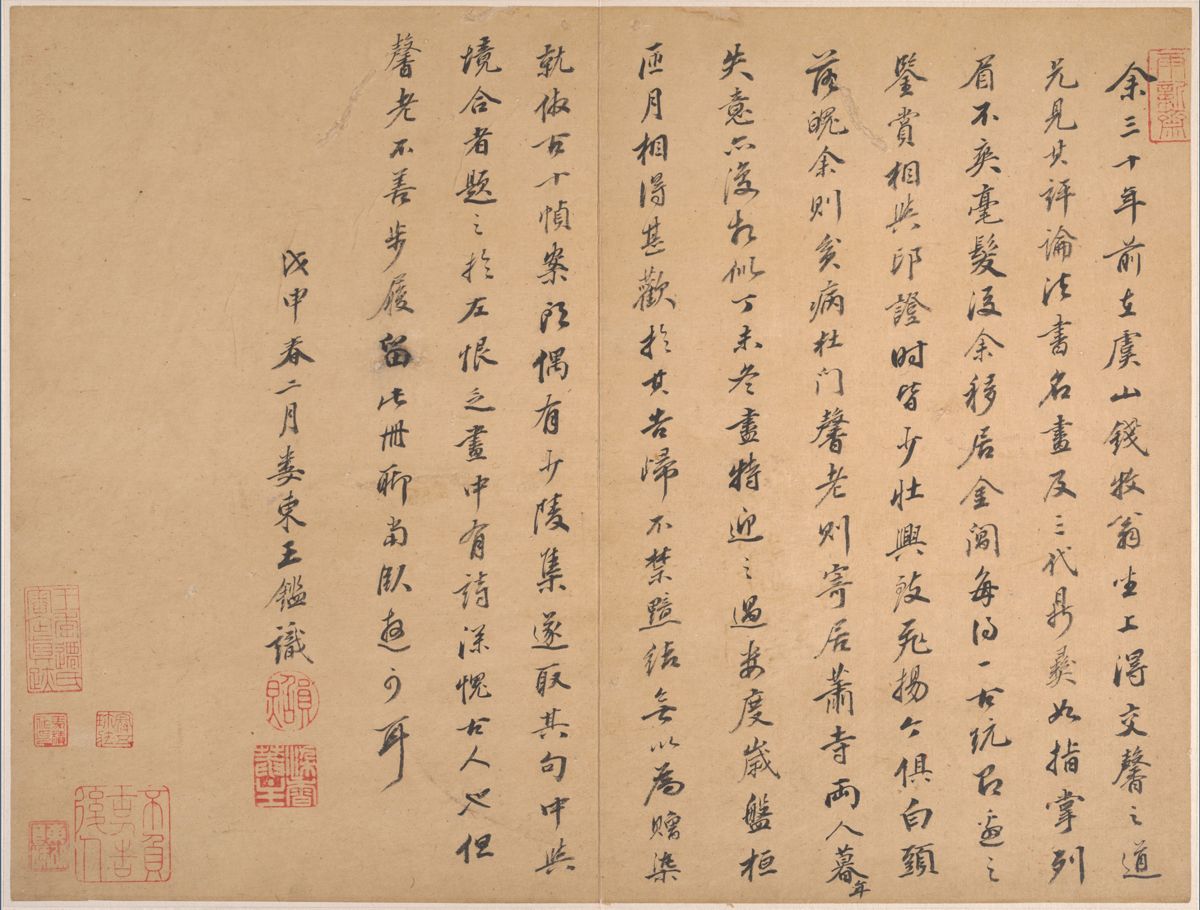 余三十年前在虞山錢牧翁坐上得交馨之道
兄見其評論法書名畫及三代鼎彝如指掌列
眉不爽毫髮後余移居金閶每得一古玩必
鑒賞相與印證時皆少壯興致飛揚今俱白頭
落魄余則貧病杜門馨老則寄居蕭寺兩人暮年
失意亦復相似丁未冬盡特迎之過婁度歲盤桓
匝月相得甚歡於其告歸不禁黯結無以為贈染
就倣古十幀案頭偶有少陵集遂取其句中與
境合者題之於左恨乏畫中有詩深愧古人也但
馨老不善步履留此冊聊當臥遊可耳
戊申春二月婁東王鑑識